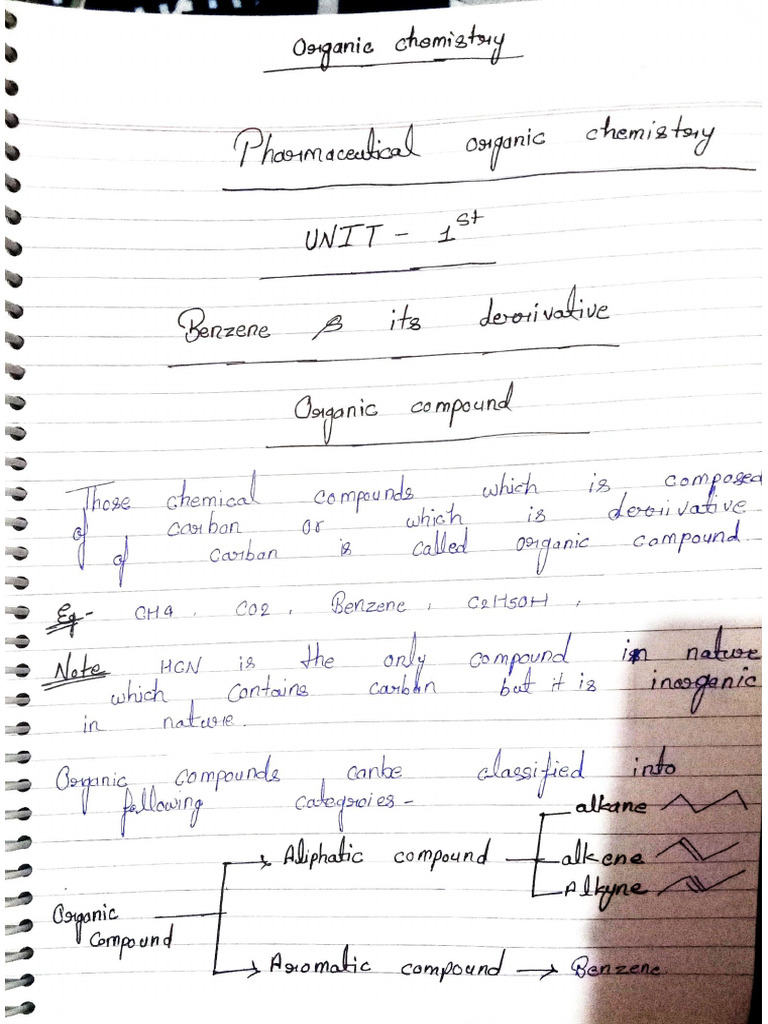 Organic chemistry
Pharmaceutical organic chemistry
UNIT - 1st
Benzene & its derivative
Organic compound
Those chemical compounds which is composed
of carbon or which is derivative
of carbon is called organic compound
Eg- CH4, CO2, Benzene, C2H5OH,
Note HCN is the only compound in nature
which contains carbon but it is inorganic
in nature.
Organic compounds canbe classified into
following categroies-
alkane
Aliphatic compound
alkene
Alkyne
Organic
Compound
Aromatic compound → Benzene